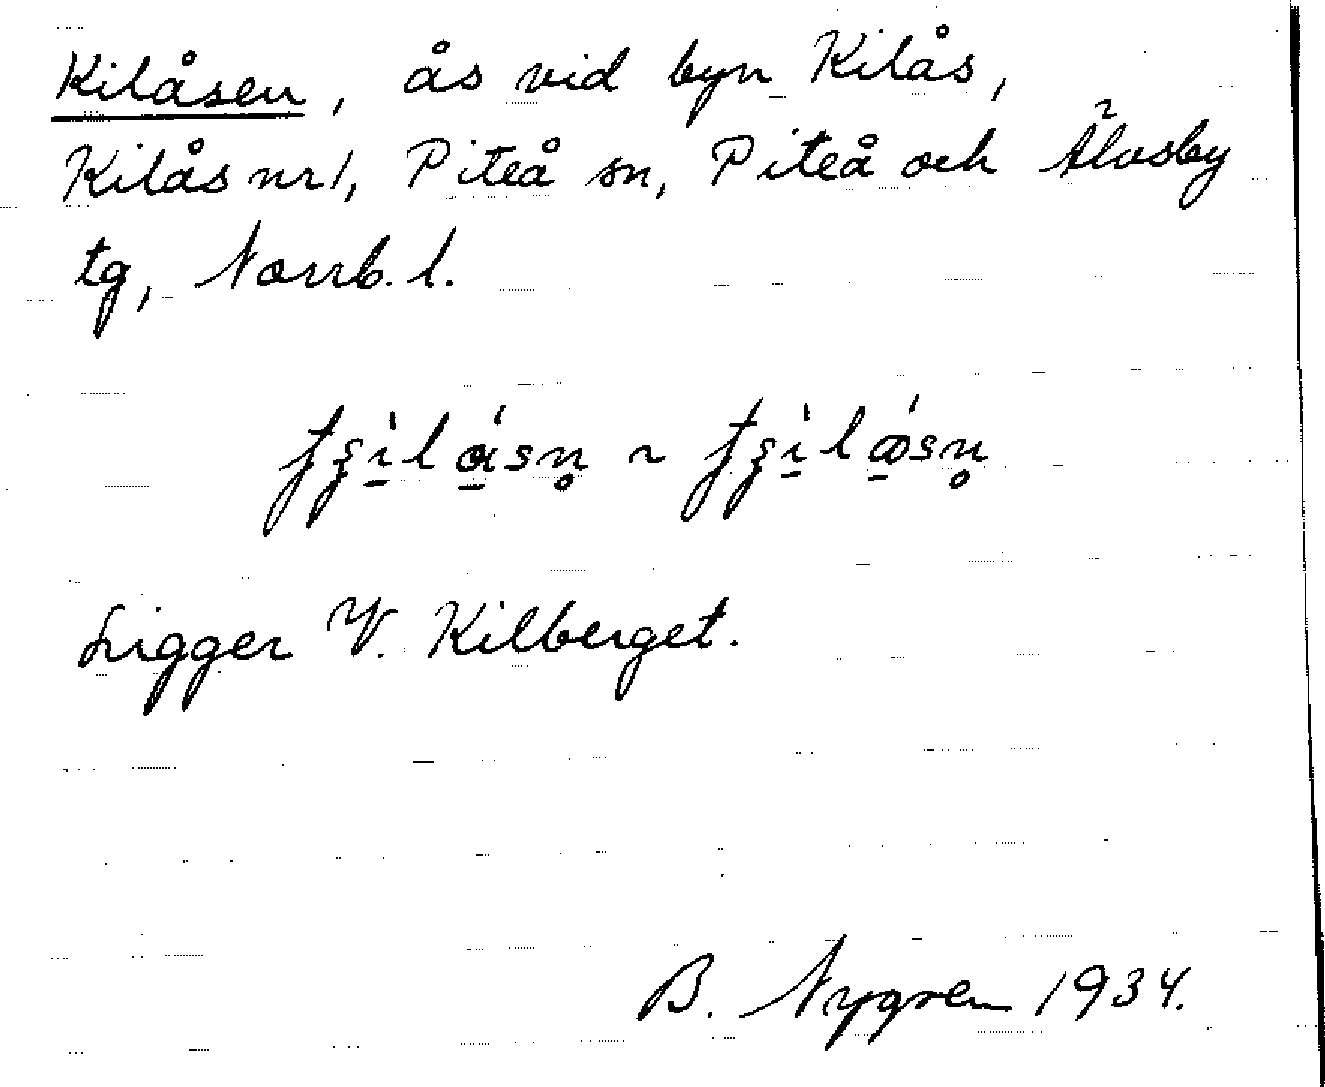 Kilåsen, ås vid byn Kilås,
Kilås nr 1, Piteå sn, Piteå och Älvsby
tg, Norrb. l.
Ligger V. Kilberget.
B. Nygren 1934.